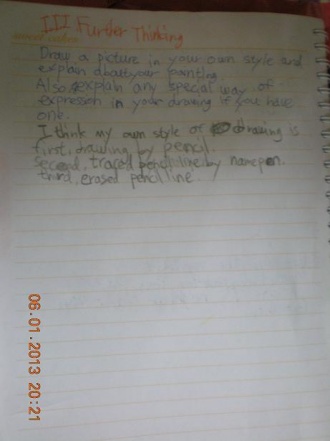 III Further Thinking
Draw a picture in your own style and
explain about your painting.
Also explain any special way of
expression in your drawing if you have
one.
I think my own style of drawing is
first, drawing by pencil.
second, traced pencil line by namepen.
third, erased pencil line
06.01.2013 20:21